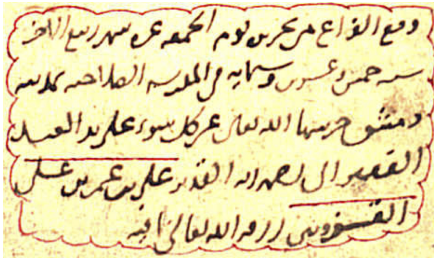 وقع الفراغ من تحريره يوم الجمعة غرة شهر ربيع الآخر
سنة خمس وعشرين وستمايه في المدرسة الصلاحيه بمدينة
دمشق حرسها الله تعالى عن كل سوء على يد العبد
الفقير الى رحمة الله القدير علي بن عمر بن علي
القزويني رزقه الله تعالى